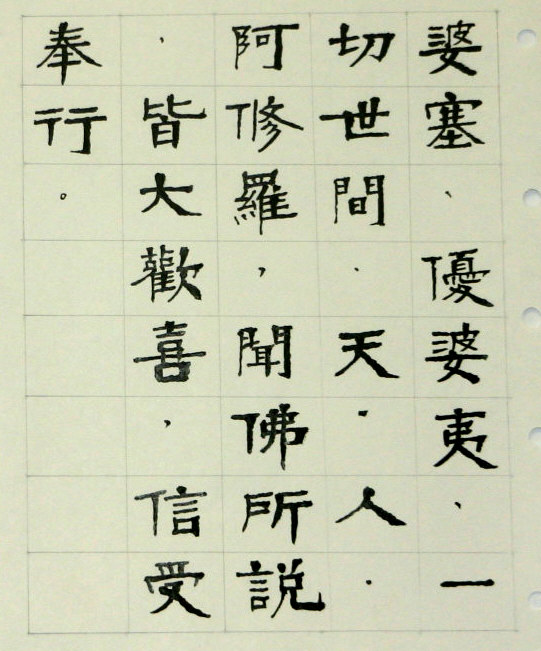 婆塞、優婆夷、一
切世間、天、人、
阿修羅，聞佛所說
，皆大歡喜，信受
奉行。